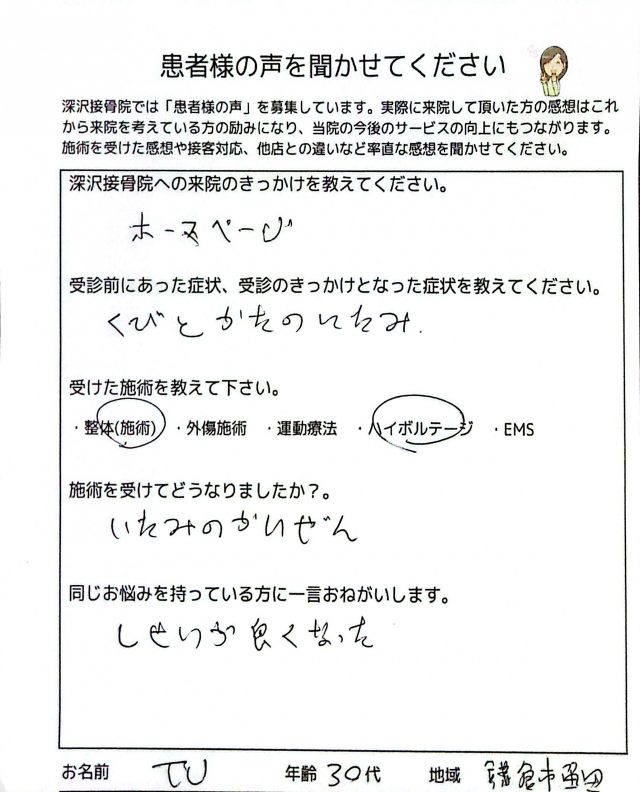 患者様の声を聞かせてください
深沢接骨院では「患者様の声」を募集しています。実際に来院して頂いた方の感想はこれ
から来院を考えている方の励みになり、当院の今後のサービスの向上にもつながります。
施術を受けた感想や接客対応、他店との違いなど率直な感想を聞かせてください。
深沢接骨院への来院のきっかけを教えてください。
ホームページ
受診前にあった症状、受診のきっかけとなった症状を教えてください。
くびとかたのいたみ.
受けた施術を教えて下さい。
・整体(施術) ・外傷施術 ・運動療法 ・ハイボルテージ ・EMS
施術を受けてどうなりましたか？。
いたみのかいぜん
同じお悩みを持っている方に一言おねがいします。
しせいが良くなった
お名前 TU 年齢 30代 地域 鎌倉市